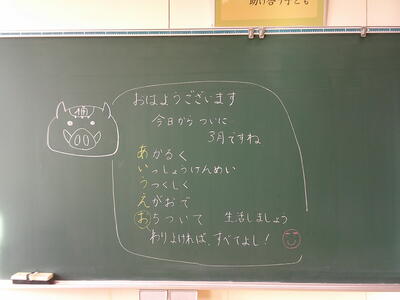 助け合う子ども
おはようございます
今日から ついに
3月ですね
あかるく
いっしょうけんめい
うつくしく
えがおで
おちついて 生活しましょう
おわりよければ、すべてよし!